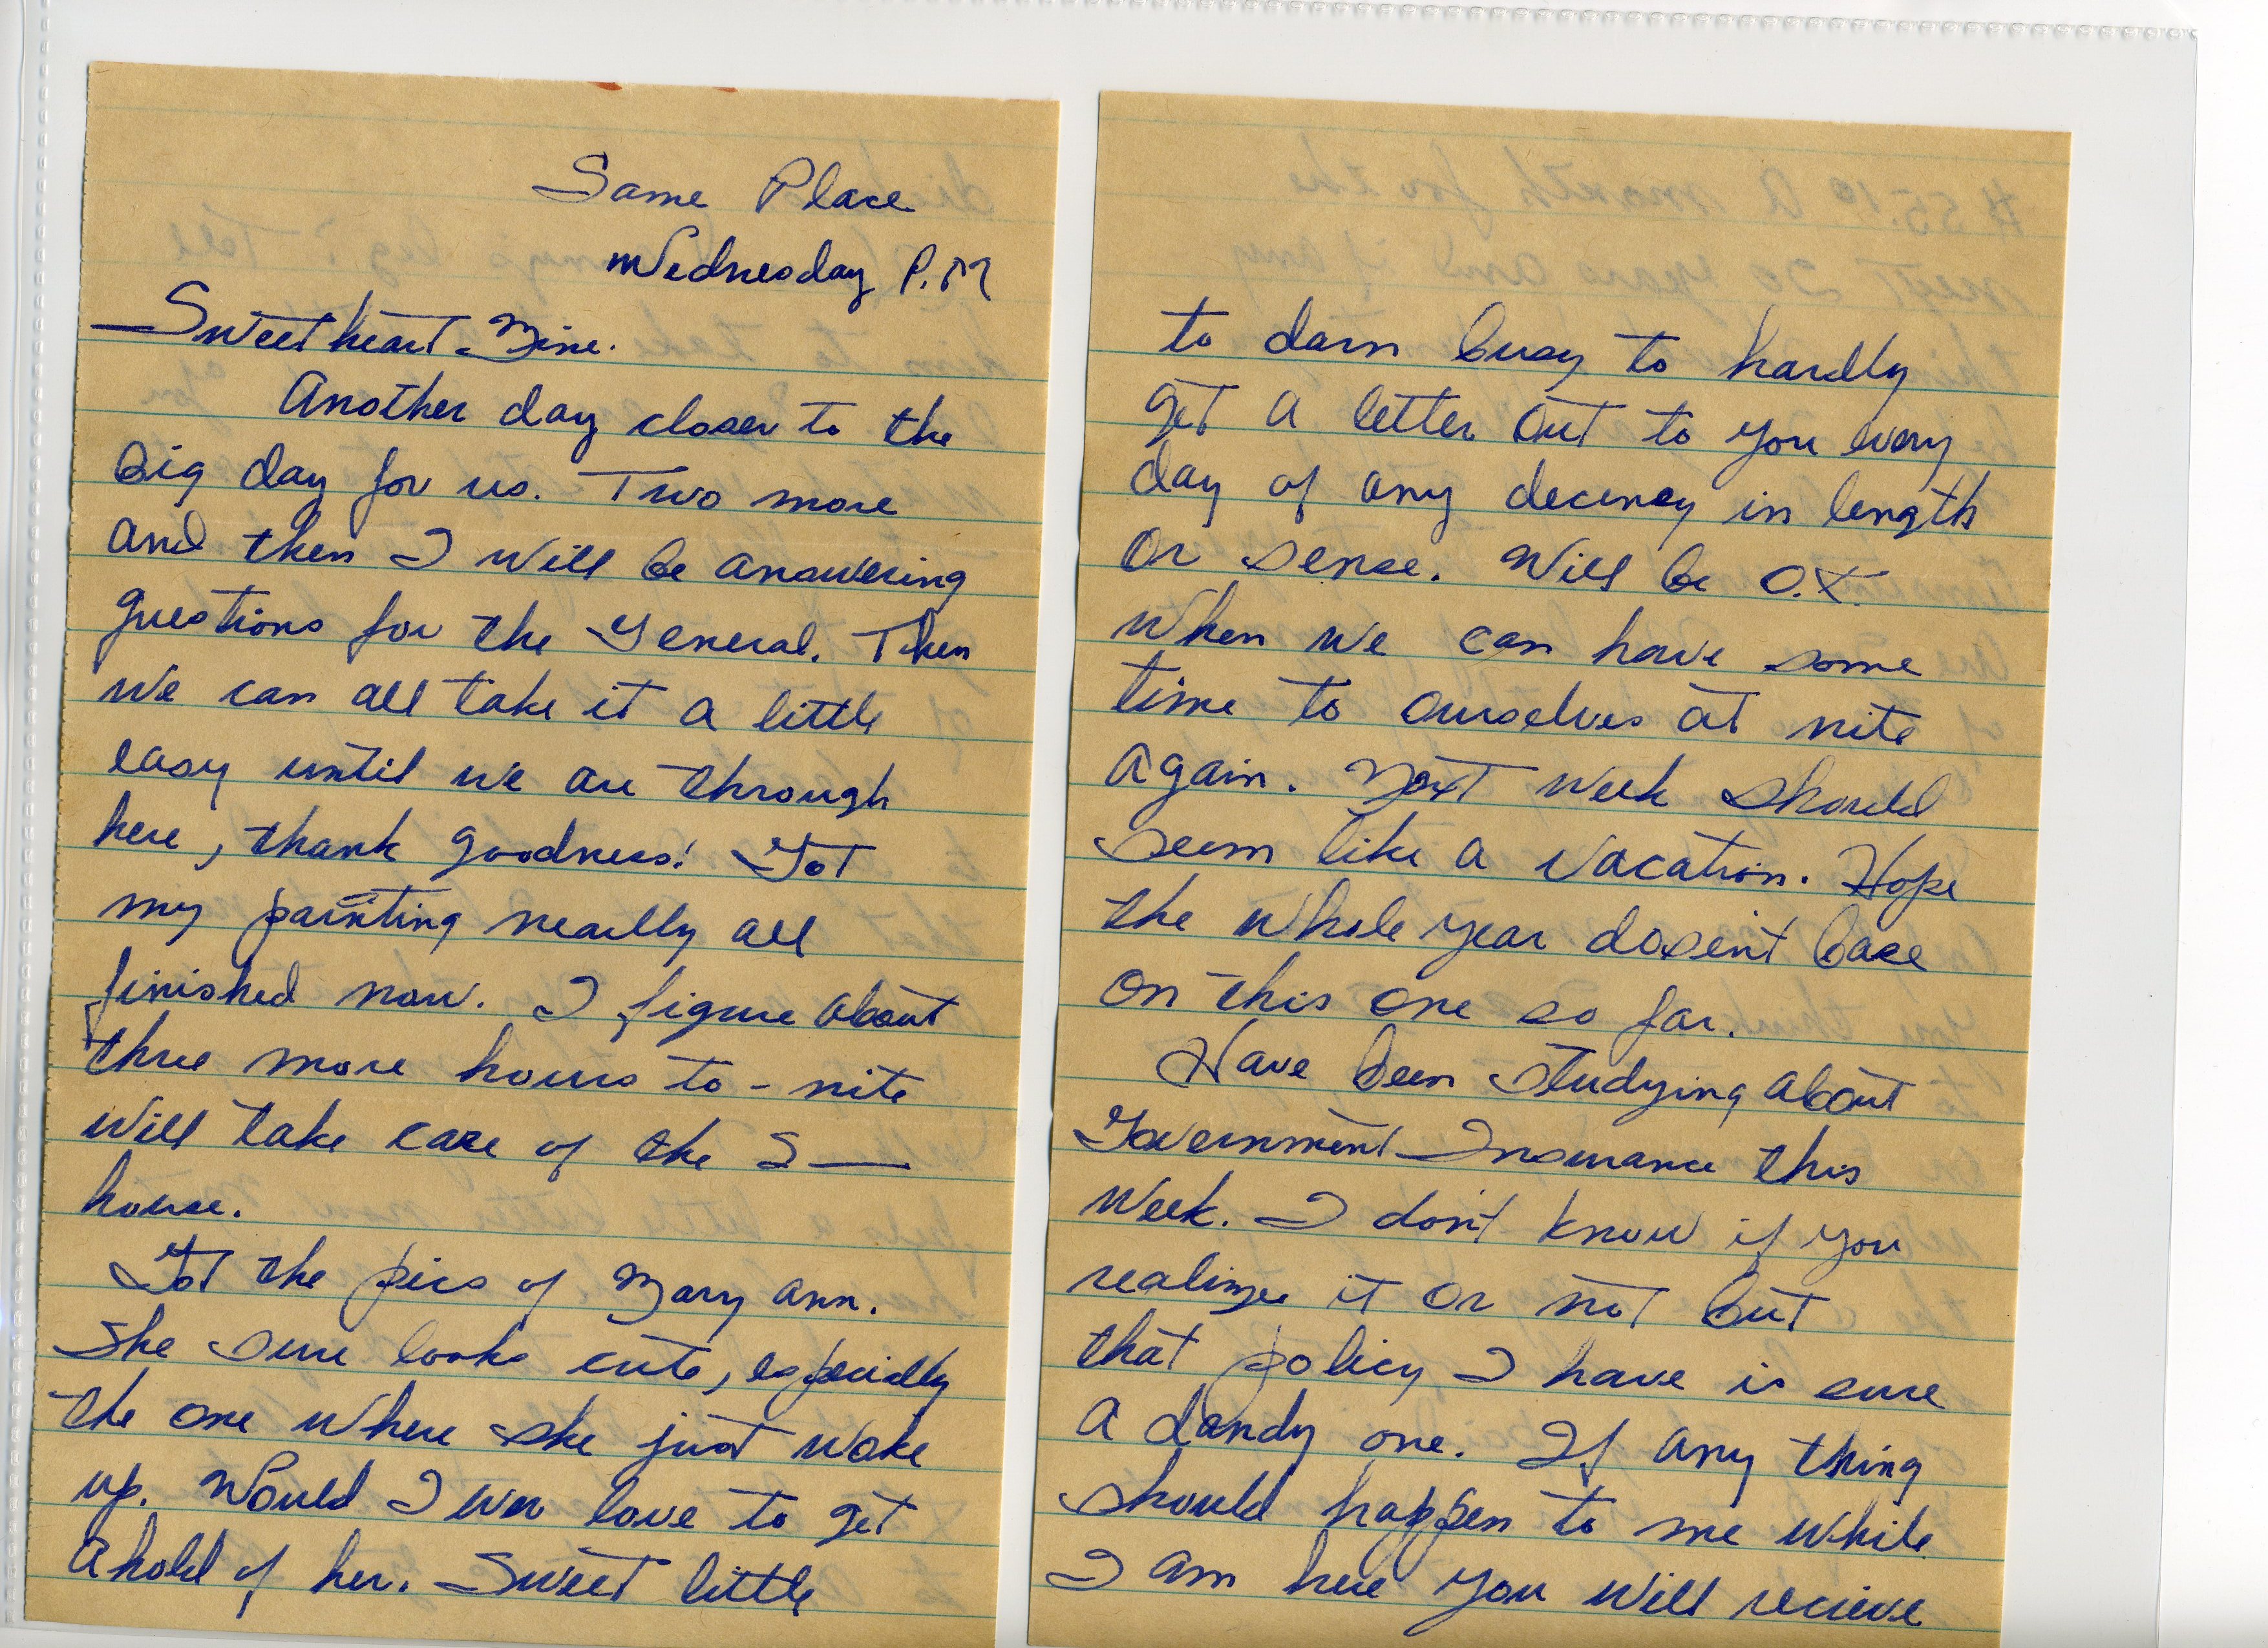 Same Place
Wednesday P.M
Sweetheart Mine.
Another day closer to the
big day for us. Two more
and then I will be answering
questions for the General. Then
we can all take it a little
easy until we are through
here, thank goodness! Got
my painting neailly all
finished now. I figure about
three more hours to-nite
will take care of the S—
house.
Got the pics of Mary Ann.
She sure looks cute, especially
the one where she just woke
up. Would I ever love to get
ahold of her. Sweet little
to darn busy to hardly
get a letter out to you every
day of any decency in length
or sense. Will be O.K.
when we can have some
time to ourselves at nite
again. Next week should
seem like a vacation. Hope
the whole year dosent base
on this one so far.
Have been studying about
Government Insurance this
week. I don't know if you
realize it or not but
that policy I have is sure
a dandy one. If any thing
should happen to me while
I am here you will recieve